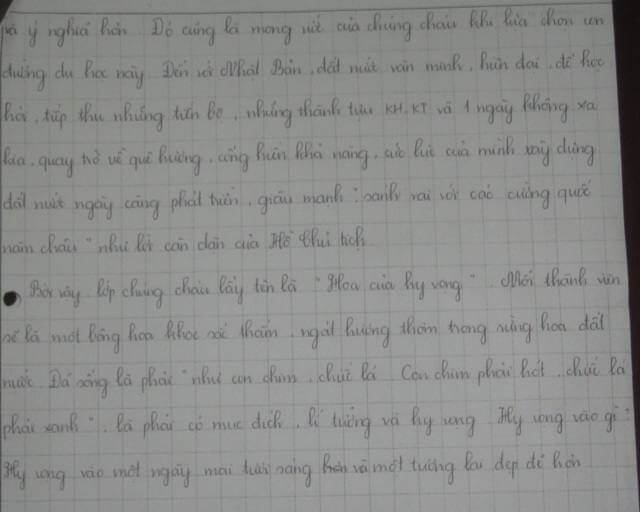 và ý nghĩa hơn. Đó cũng là mong ước của chúng cháu khi lựa chọn con
đường du học này. Đến với Nhật Bản, đất nước văn minh, hiện đại, để học
hỏi, tiếp thu những tiến bộ, những thành tựu KH, KT và 1 ngày không xa
kia, quay trở về quê hương, cống hiến khả năng, sức lực của mình xây dựng
đất nước ngày càng phát triển, giàu mạnh "sánh vai với các cường quốc
năm châu" như lời căn dặn của Hồ Chủ tịch.
Bởi vậy, lớp chúng cháu lấy tên là "Hoa của hy vọng". Mỗi thành viên
sẽ là một bông hoa khoe sắc thắm, ngát hương thơm trong rừng hoa đất
nước. Đã sống là phải "như con chim, chiếc lá. Con chim phải hót, chiếc lá
phải xanh", là phải có mục đích, lí tưởng và hy vọng. Hy vọng vào gì?
Hy vọng vào một ngày mai tươi sáng hơn và một tương lai đẹp đẽ hơn